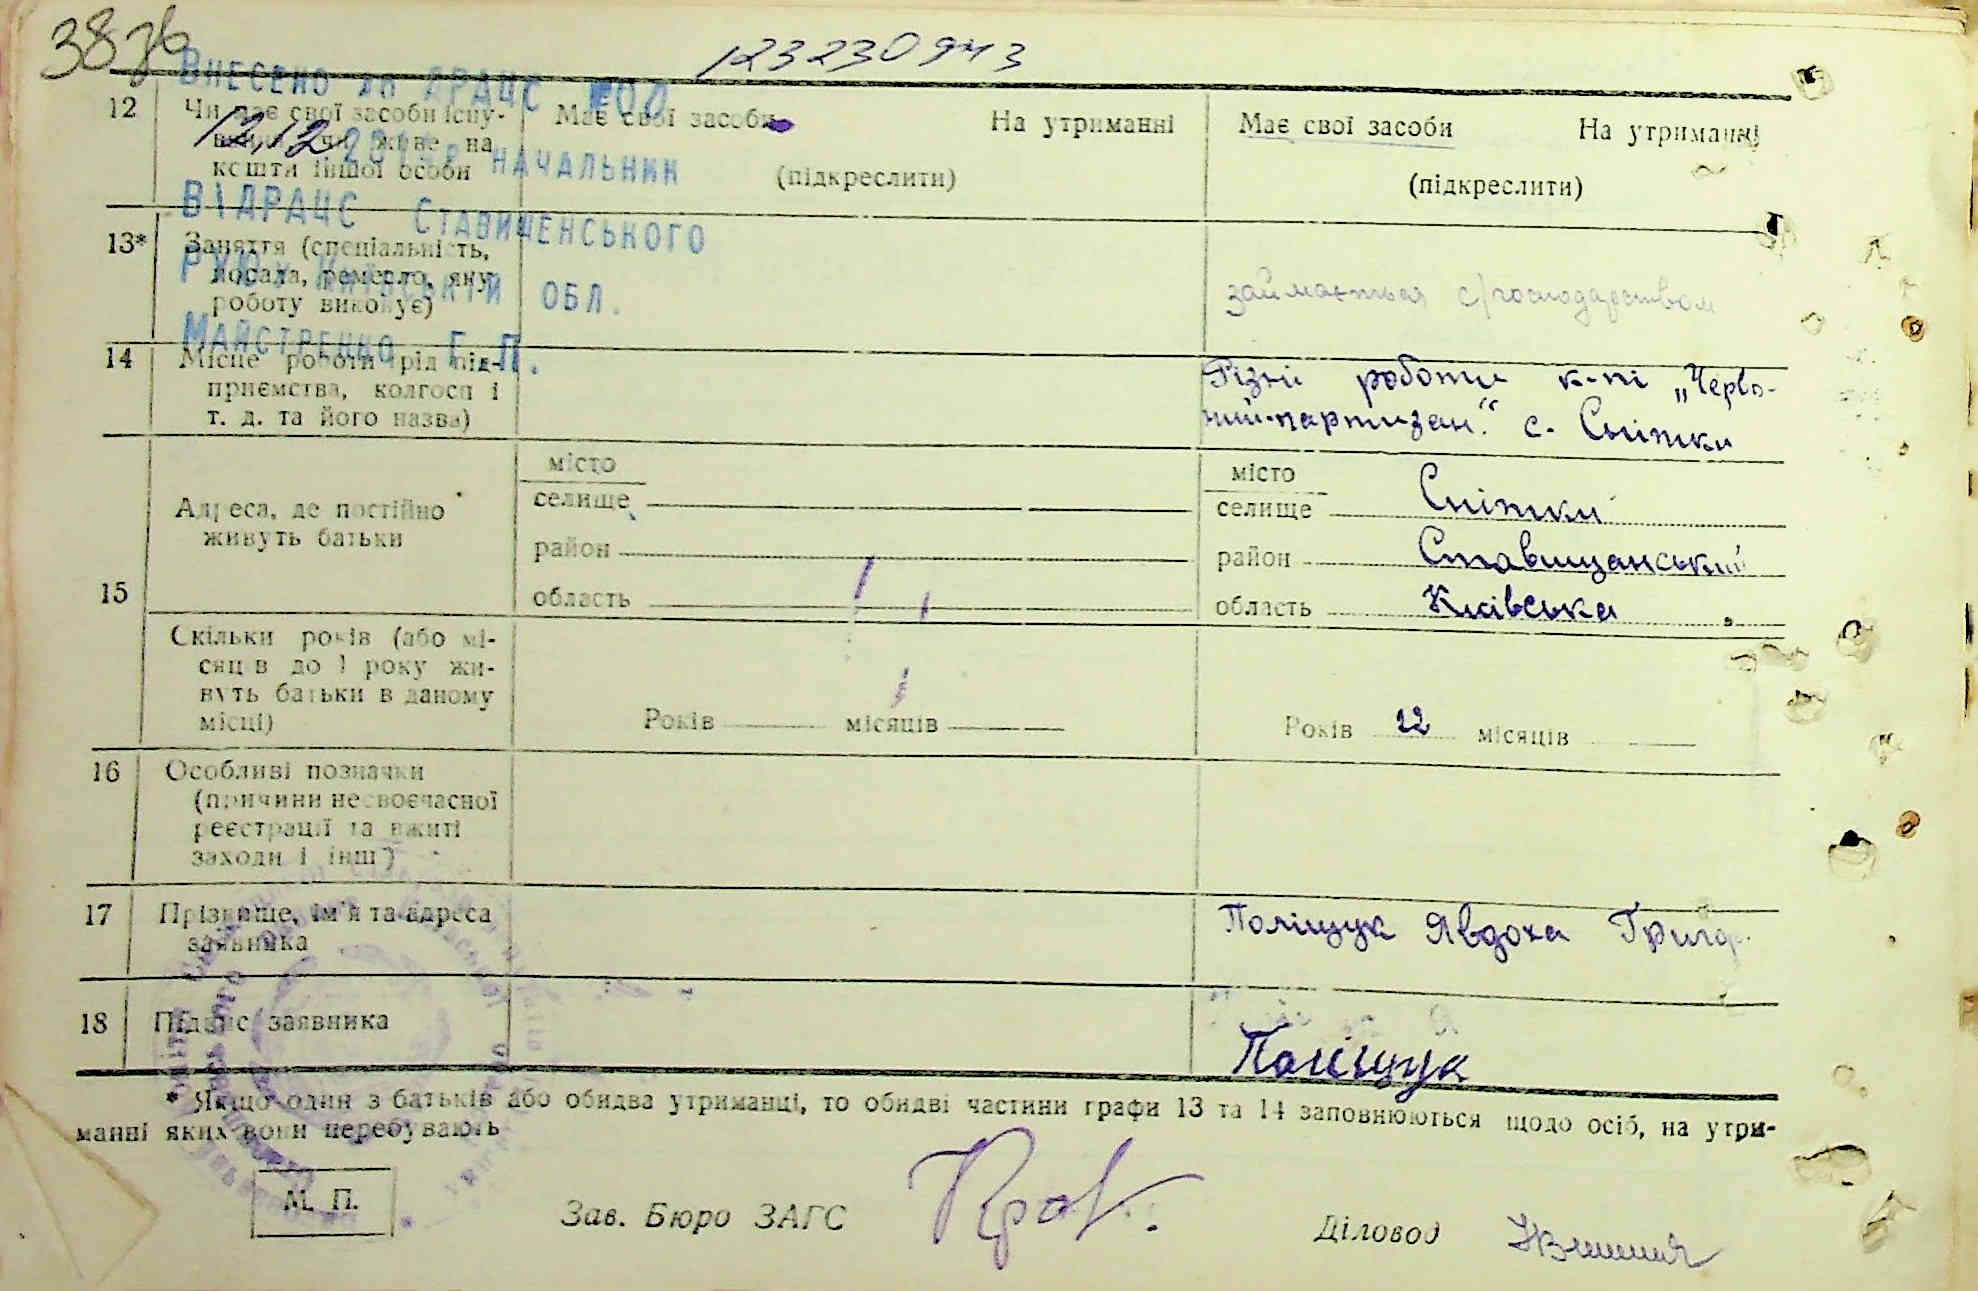 38 зв
123230943
Внесено до ДРАЦС 
12.12 201 р начальник
ВДРАЦС Ставищенського
РУЮ у Київській обл.
Майстренко Г.П.
12 Чи має свої засоби існу- Має свої засоби На утриманні Має свої засоби На утриманні
вання чи живе на
кошти іншої особи (підкреслити) (підкреслити)
13* Заняття (спеціальність,
посада, ремесло, яку займається с/господарством
роботу виконує)
14 Місце роботи (рід під- Різні роботи к-пі „Черво-
приємства, колгосп і ний-партизан." с. Снітки
т. д. та його назва)
місто місто
селище селище Снітки
Адреса, де постійно
живуть батьки район район Ставищанський
15 область область Київська
Скільки років (або мі-
сяців до 1 року жи-
вуть батьки в даному
місці) Років місяців Років 22 місяців
16 Особливі позначки
(причини несвоєчасної
реєстрації та вжиті
заходи і інш)
17 Прізвище, ім'я та адреса Поліщук Явдоха Григор.
заявника
18 Підпис заявника Поліщук
* Якщо один з батьків або обидва утриманці, то обидві частини графи 13 та 14 заповнюються щодо осіб, на утри-
манні яких вони перебувають
М. П. Зав. Бюро ЗАГС Діловод